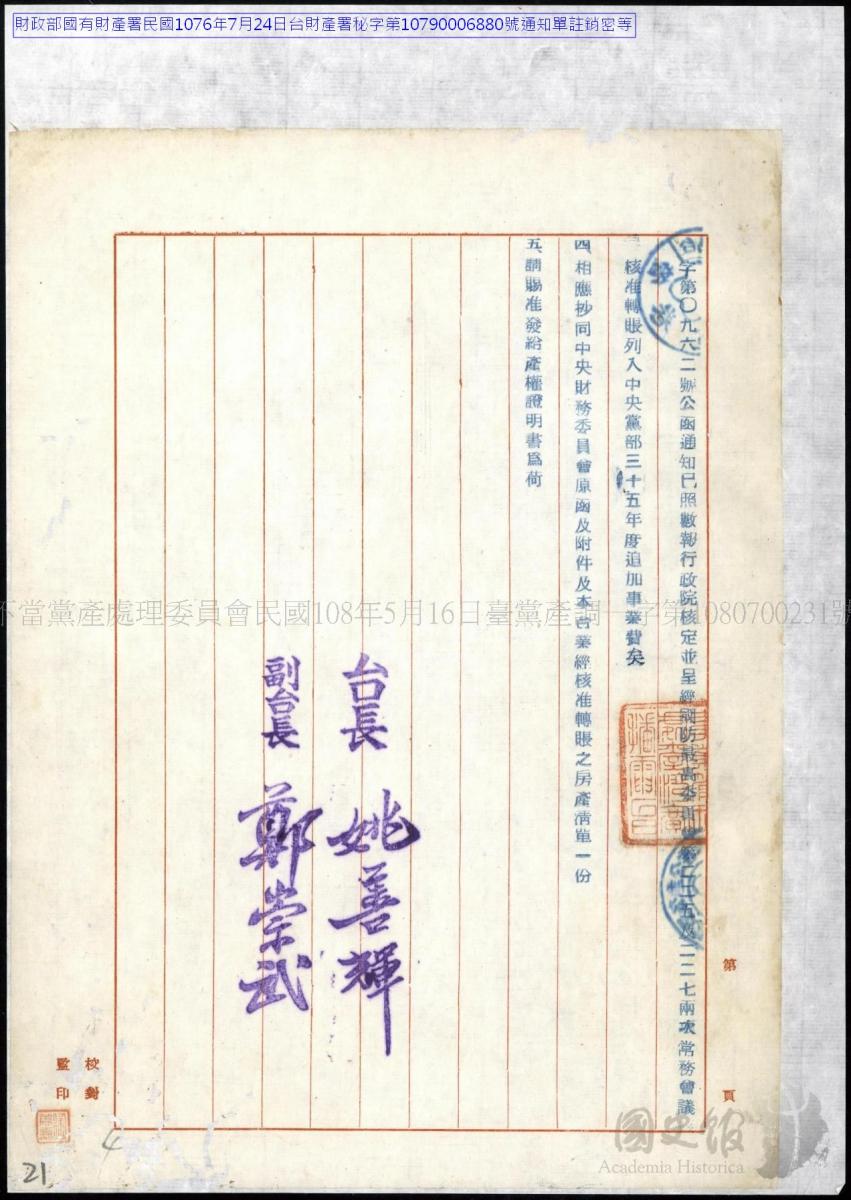 財政部國有財產署民國1076年7月24日台財產署秘字第10790006880號通知單註銷密等
字第〇九六二號公函通知已照數報行政院核定並呈經國防最高委員會第二二五及二二七兩次常務會議
核准轉賬列入中央黨部三十五年度追加事業費矣
四 相應抄同中央財務委員會原函及附件及本台業經核准轉賬之房產清單一份
五 請賜准發給產權證明書為荷
台長 姚善輝
副台長 鄭崇武
不當黨產處理委員會民國108年5月16日臺黨產調 字第1080700231號
第 頁
校對
監印
21
4
國史館
Academia Historica